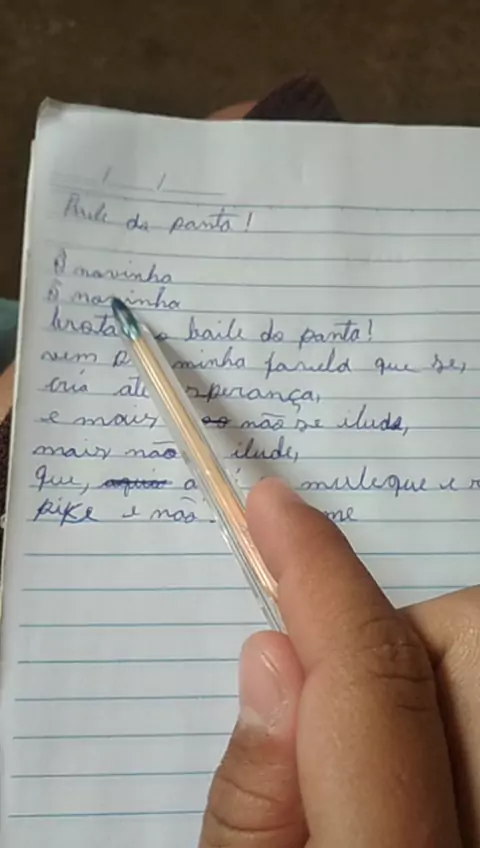 Baile do panta!
Ô navinha
Ô navinha
brota baile do panta!
vem minha favela que se,
cria até sperança,
e mais não se iluda,
mais não ilude,
que, a muleque e
pike e não me